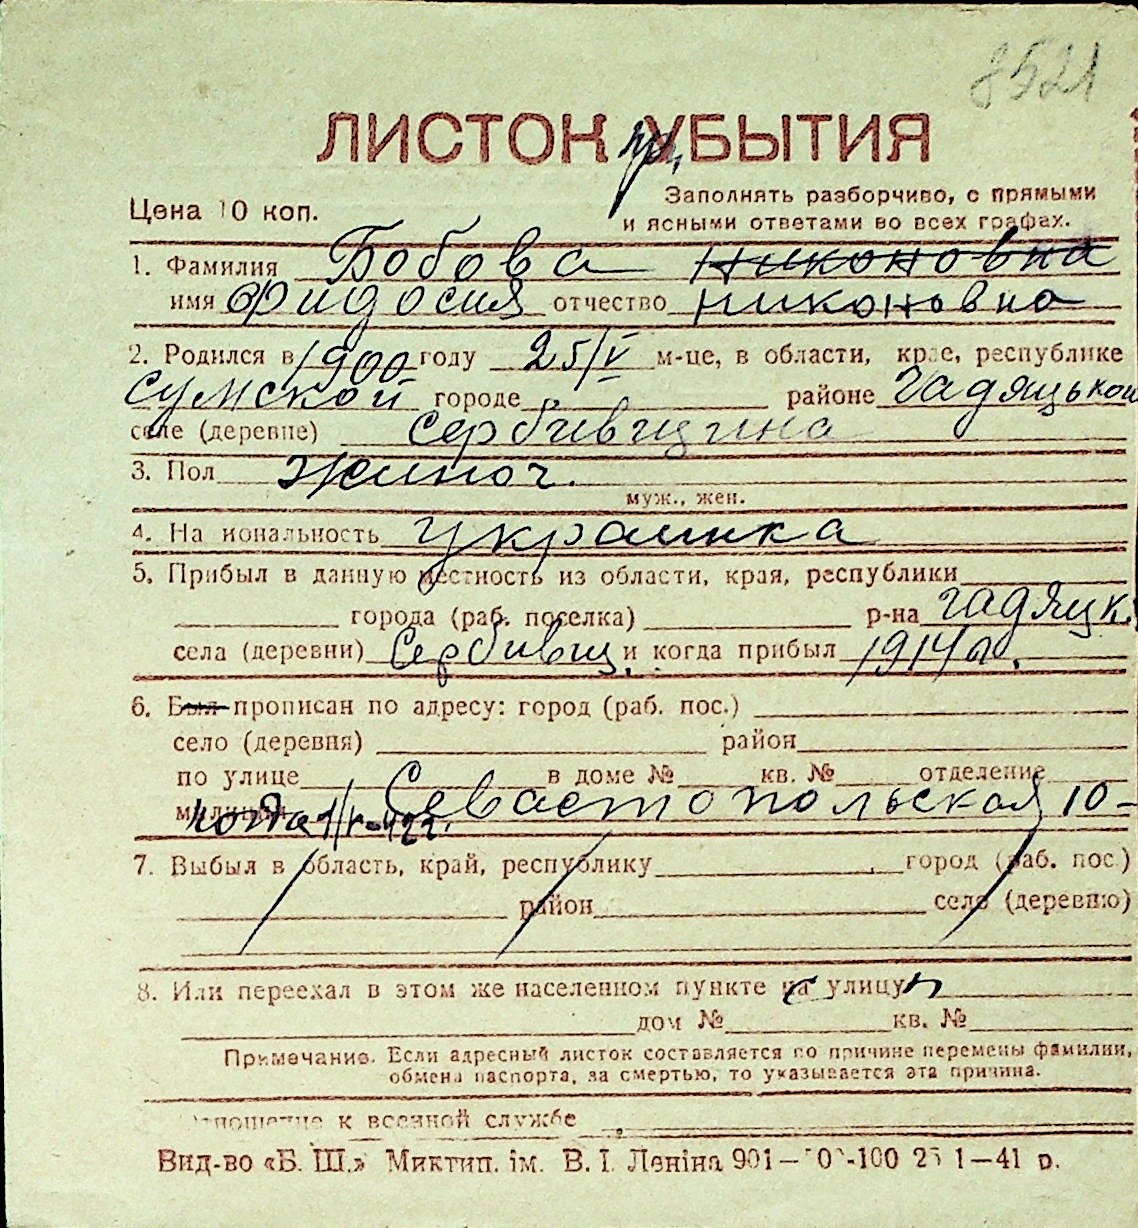 8521
ЛИСТОК пр. УБЫТИЯ
Цена 10 коп.
Заполнять разборчиво, с прямыми
и ясными ответами во всех графах.
1. Фамилия Бобова Никоновна
имя Фидосия отчество Никоновна
2. Родился в 1900 году 25/V м-це, в области, крае, республике
Сумской городе районе Гадяцькои
селе (деревне) Сербивщина
3. Пол жиноч.
муж., жен.
4. Национальность Украинка
5. Прибыл в данную местность из области, края, республики
города (раб. поселка) р-на Гадяцк.
села (деревни) Сербивщ. и когда прибыл 1914 г.
6. Был прописан по адресу: город (раб. пос.)
село (деревня) район
по улице в доме № кв. № отделение
милиции Севастопольская 10-
когда
7. Выбыл в область, край, республику город (раб. пос.)
район село (деревню)
8. Или переехал в этом же населенном пункте на улицу
дом № кв. №
Примечание. Если адресный листок составляется по причине перемены фамилии,
обмена паспорта, за смертью, то указывается эта причина.
Отношение к военной службе
Вид-во «Б. Ш.» Миктип. ім. В. І. Леніна 901— -100 1—41 р.